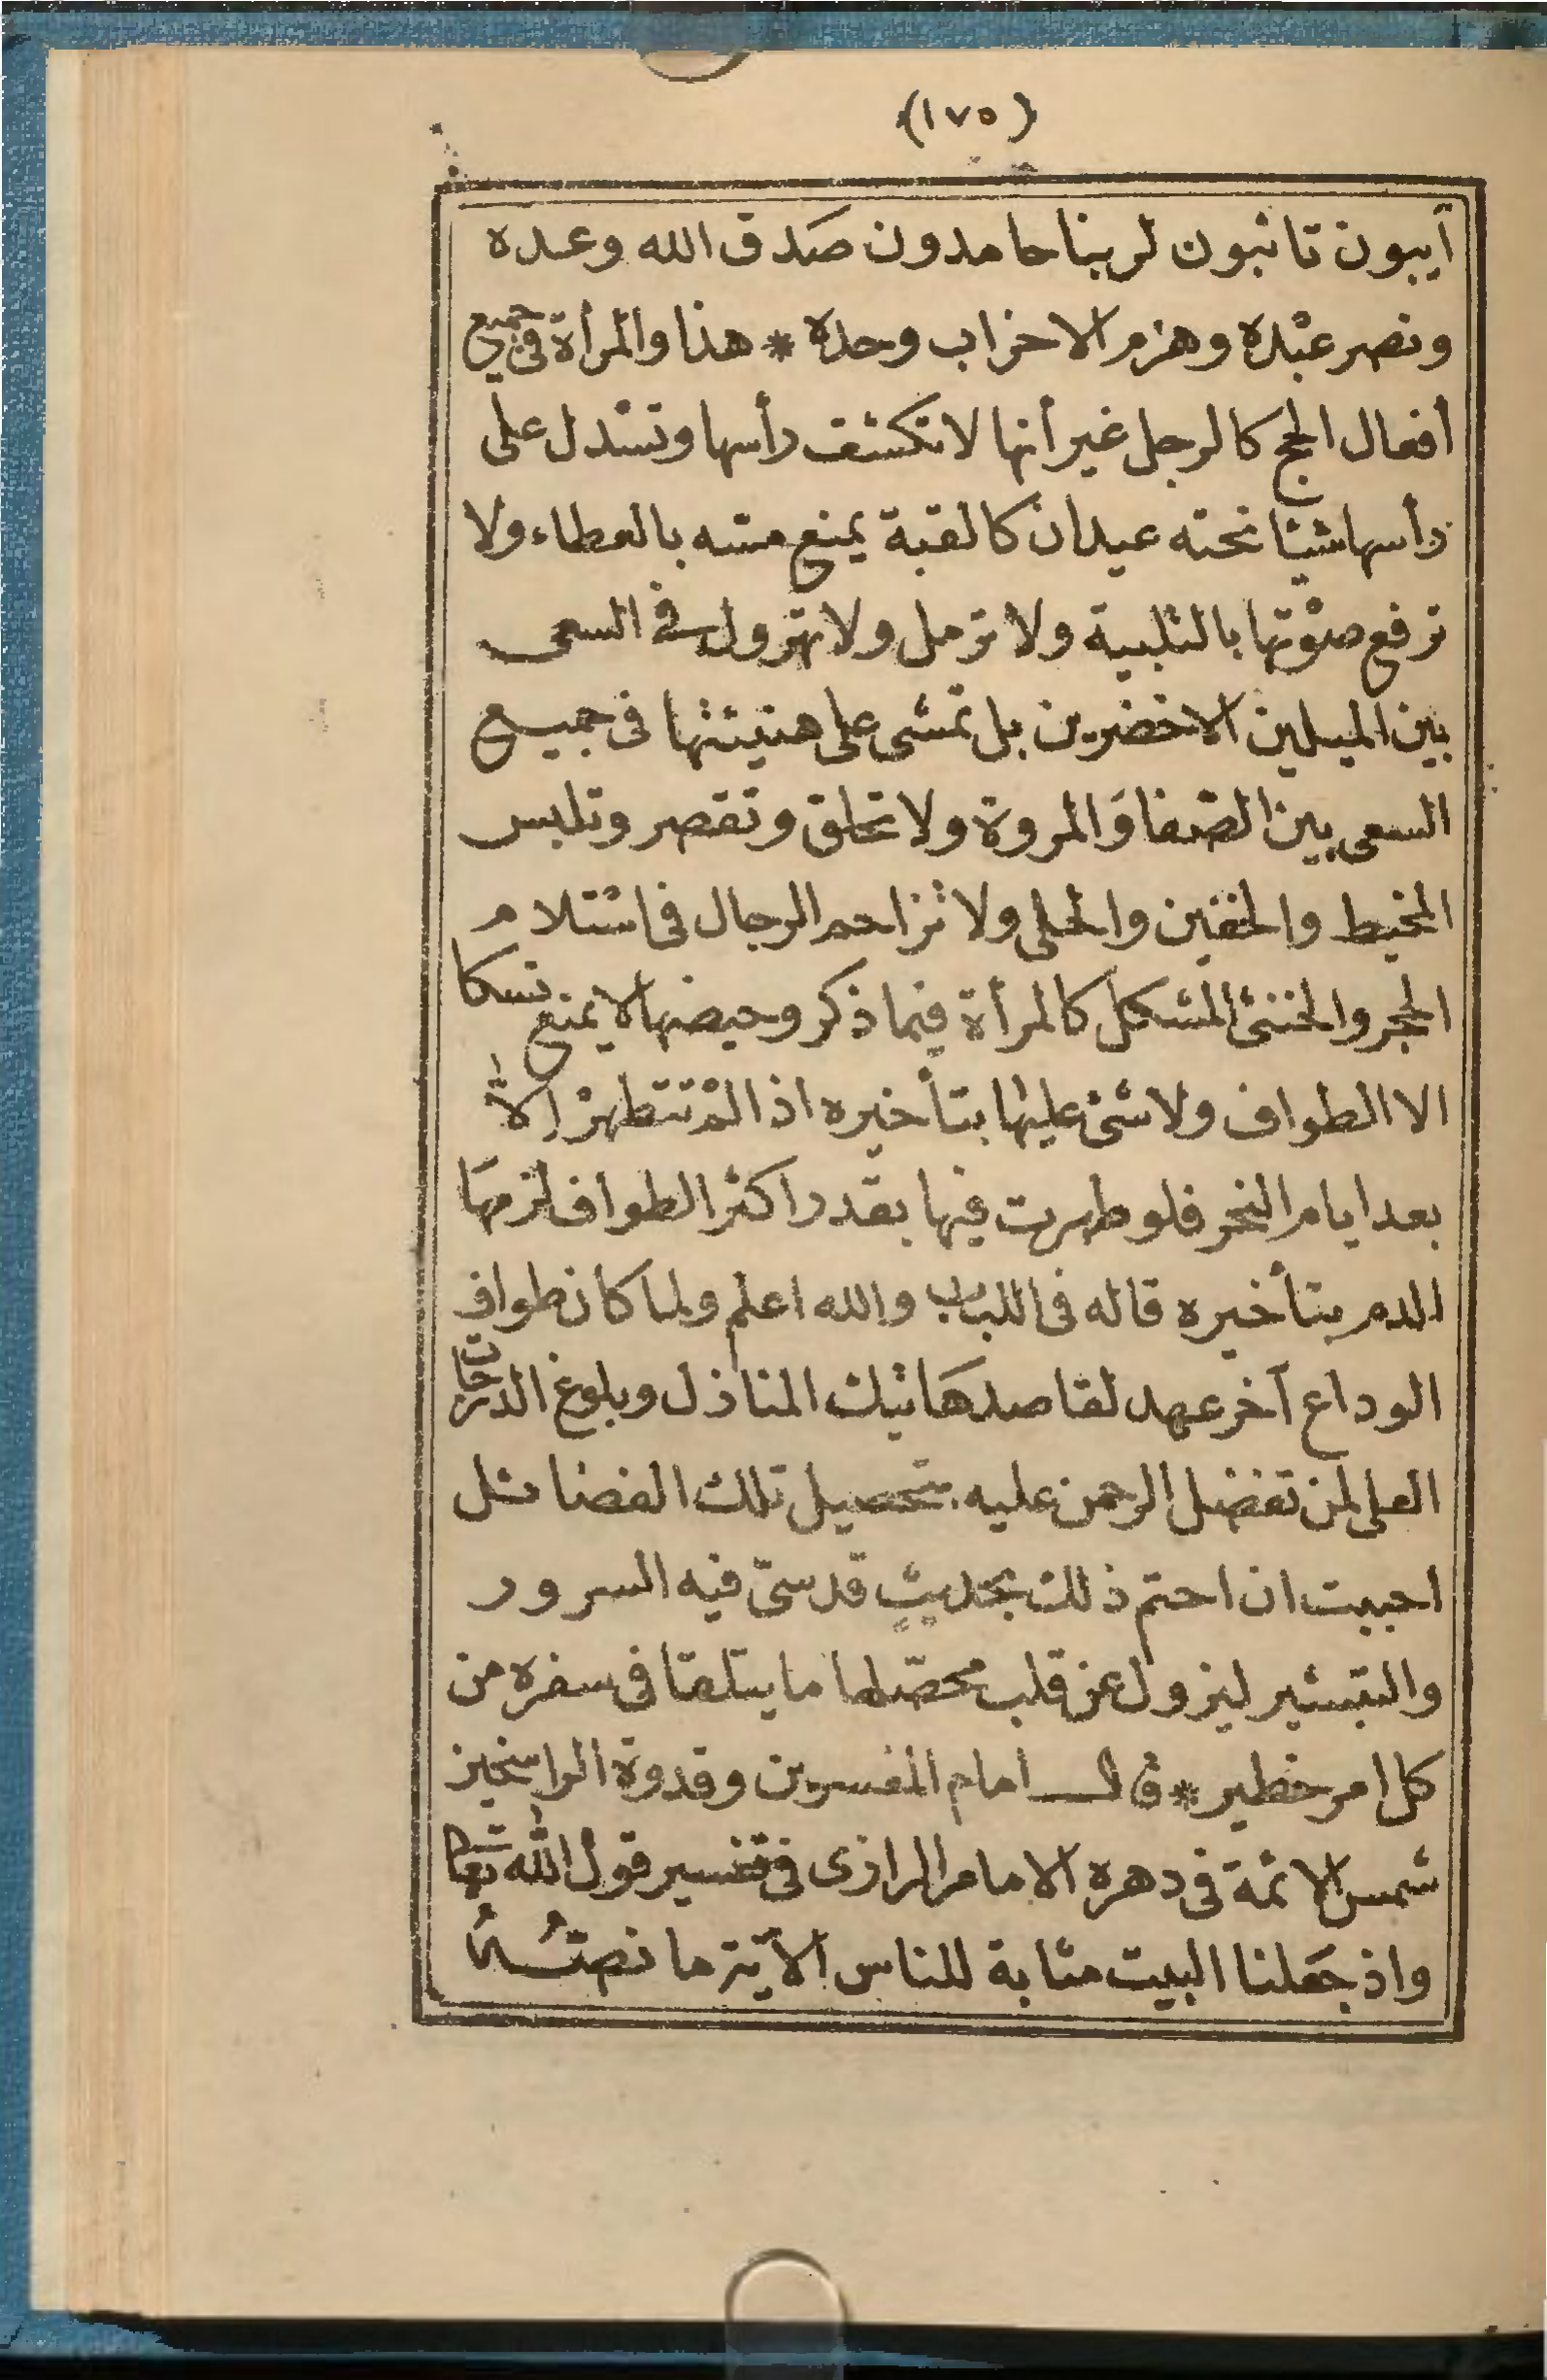 (١٧٥)
آيبون تائبون لربنا حامدون صدق الله وعده
ونصر عبده وهزم الاحزاب وحده * هذا والمرأة فى جميع
أفعال الحج كالرجل غير أنها لا تكشف رأسها وتسدل على
رأسها شيئا تحته عيدان كالقبة يمنع مسه بالغطاء ولا
ترفع صوتها بالتلبية ولا ترمل ولا تهرول فى السعى
بين الميلين الاخضرين بل تمشى على هنيئتها فى جميع
السعى بين الصفا والمروة ولا تحلق وتقصر وتلبس
المخيط والخفين والحلى ولا تزاحم الرجال فى استلام
الحجر والخنثى المشكل كالمرأة فيما ذكر وحيضها لا يمنع نسكا
الا الطواف ولا شئ عليها بتأخيره اذا لم تتطهر إلا
بعد ايام النحر فلو طهرت فيها بقدر اكثر الطواف لزمها
الدم بتأخيره قاله فى اللباب والله اعلم ولما كان طواف
الوداع آخر عهد لقاصد هاتيك المنازل وبلوغ الدرجات
العلى لمن تفضل الرحمن عليه بتحصيل تلك الفضائل
احببت ان اختم ذلك بحديث قدسىّ فيه السرور
والتبشير ليزول عن قلب محصّلها ما يتلقا فى سفره من
كل امر خطير * قال امام المفسرين وقدوة الراسخين
شمس الائمة فى دهره الامام الرازى فى تفسير قول الله تعالى
واذ جعلنا البيت مثابة للناس الآية ما نصه